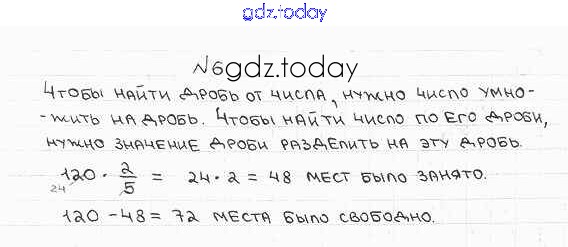 gdz.today
№6gdz.today
Чтобы найти дробь от числа, нужно число умно-
-жить на дробь. Чтобы найти число по его дроби,
нужно значение дроби разделить на эту дробь.
120 · 2/5 = 24 · 2 = 48 мест было занято.
24
120 - 48 = 72 места было свободно.